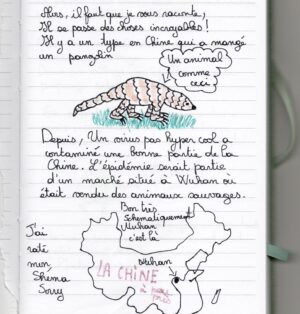 Alors, il faut que je vous raconte,
Il se passe des choses incroyables !
Il y a un type en Chine qui a mangé
un pangolin
Un animal
comme
ceci
Depuis, Un virus pas hyper cool a
contaminé une bonne partie de la
Chine. L'épidémie serait partie
d'un marché situé à Wuhan où
était vendu des animaux sauvages.
Bon très
Schématiquement
Wuhan
c'est là
J'ai
raté
mon
Shéma
Sorry
Wuhan
LA CHINE
à peu
près